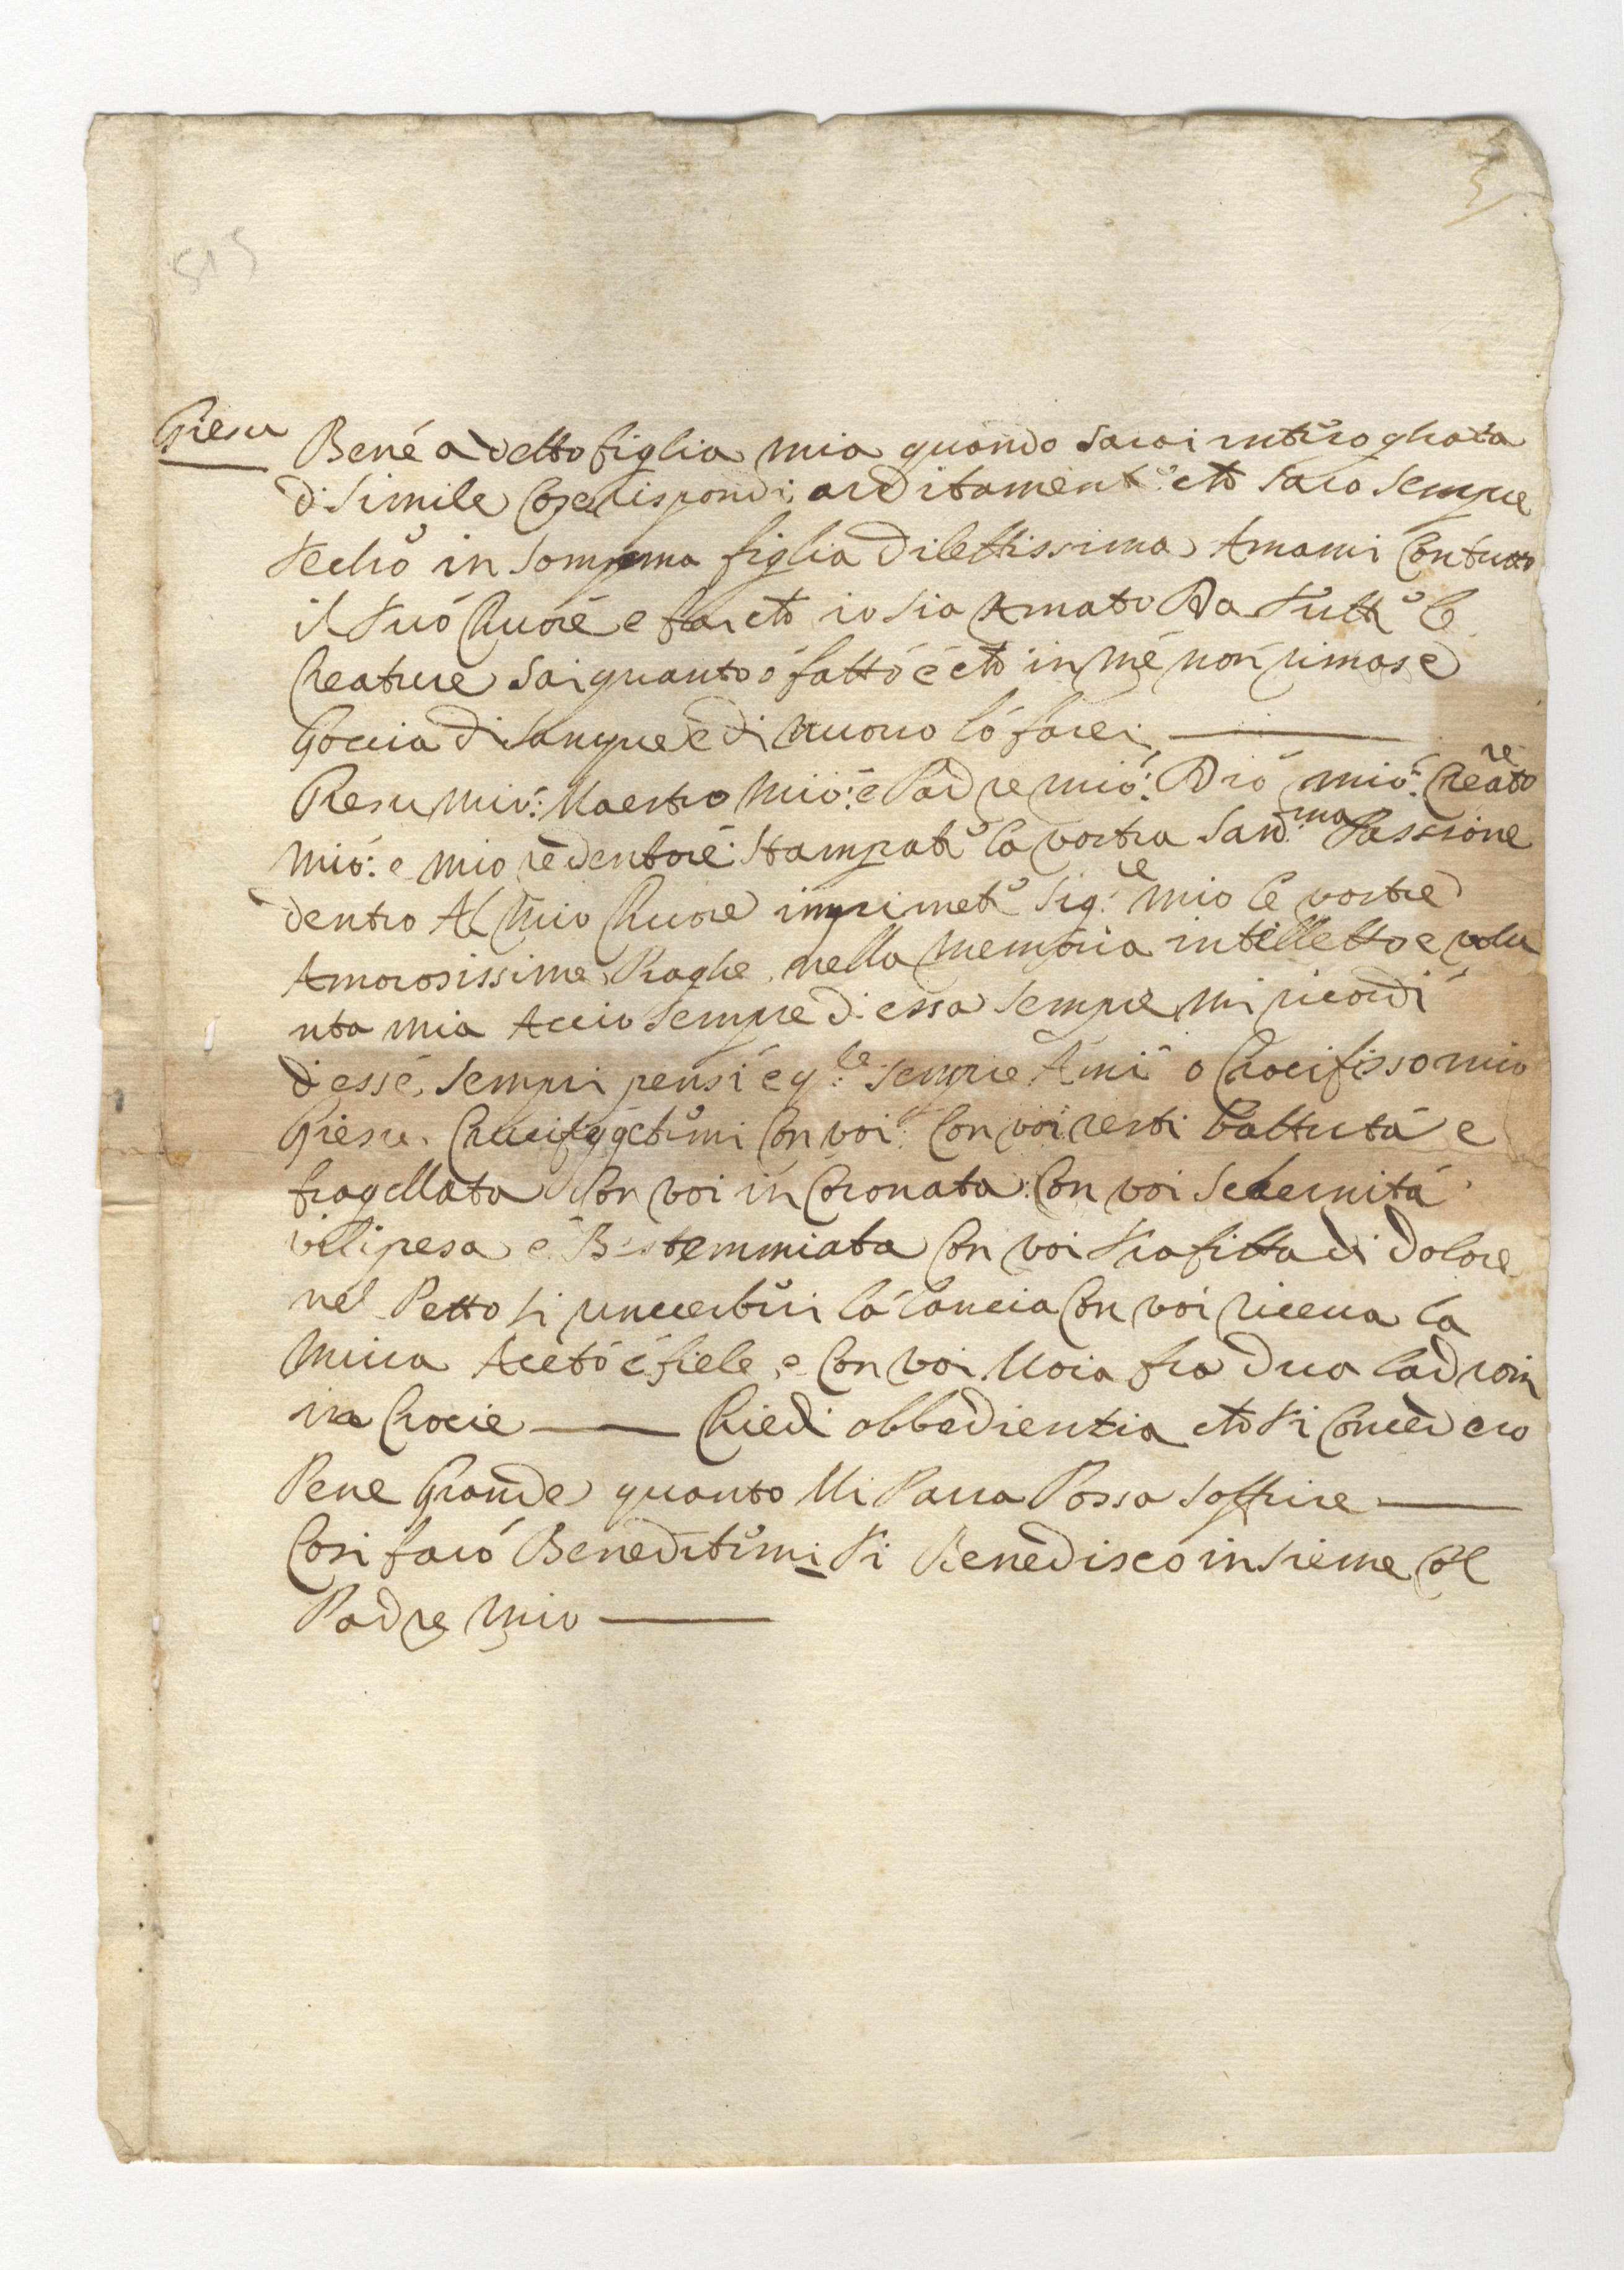 515
Giesu Bené a detto figlia mia quando sarai intĕroghata
di simile Cose rispondi arditamentĕ ch̃ saro sempre
techo in somma figlia dilettissima Amami Con tutto
il tuó Cuoré e fa ch̃ io sia Amato Da tuttĕ le
Creature sai quanto ó fattó é ch̃ in mé nón rimase
Goccia di sangue e di nuouo ló farei
Giesu mió: Maestro Mió: é Padre mió: Dió mió: Creatore
mió: e mio redentoré: stampatĕ la vostra San.ma Passione
dentro Al mio Cuore imprimetĕ Sig.re mio le vostre
Amorosissime Piaghe nella memoria intelletto e volu
nta mia Accio sempre di essa sempre mi ricordi
di essé, sempri pensi é q.le sempre Ami o Crocifisso mio
Giesu. Crucifygĕtĕmi Con voi: Con voi resti battutá e
fragellata Con voi in Coronata: Con voi schernitá
vilipesa é Bestemmiata Con voi trafitta di dolore
nel Petto si la lancia Con voi riceua la
Mirra Acetó é fiele, e Con voi Moia fra dua ladroni
in Crocie Chiedi obbedientia ch̃ ti Concedero
Pene Grande quanto Mi Parra Possa soffrire
Cosi faró Beneditĕmi ti Benedisco insieme Col
Padre Mio